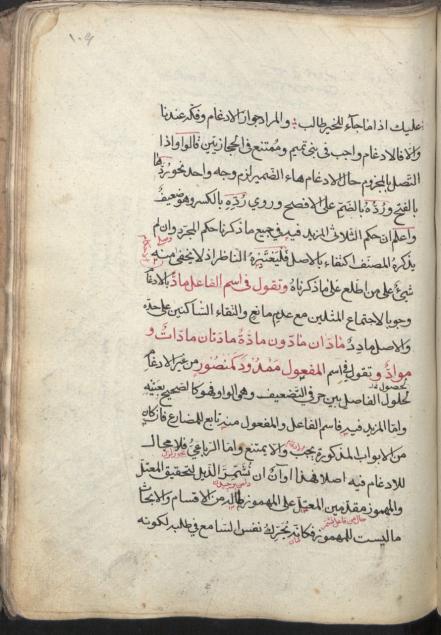 عليك اذا ما جاء للخير طالب والمراد جواز الادغام وفكه عندنا
والا فالادغام واجب فى بنى تميم وممتنع فى الحجازيين قالوا واذا
اتصل بالمجزوم حال الادغام هاء الضمير لزم وجه واحد نحو ردها
بالفتح ورده بالضم على الافصح وروى رده بالكسر وهو ضعيف
واعلم ان حكم الثلاثى المزيد فيه فى جميع ما ذكرنا حكم المجرد وان لم
يذكره المصنف اكتفاء بالاصل فليعتبره الناظر اذ لا يخفى منه
شئ على من اطلع على ما ذكرناه وتقول فى اسم الفاعل ماد بالادغام
وجوبا لاجتماع المثلين مع عدم مانع والتقاء الساكنين على حده
والاصل مادد مادان مادون مادة مادتان مادات و
مواد وتقول فى اسم المفعول ممدود كمنصور من غير الادغام
لحلول الفاصل بين حرفى التضعيف وهى الواو فهو كالصحيح بعينه
واما المزيد فيه فاسم الفاعل والمفعول منه تابع للمضارع فان كان
من الابواب المذكورة يجب والا يمتنع واما الرباعى فلا مجال
للادغام فيه اصلا فهذا اوان ان نشمر الذيل لتحقيق المعتل
والمهموز مقدمين المعتل على المهموز لما له من الاقسام والابحاث
ما ليست للمهموز فكانه نفس السامع فى طلبه لكونه